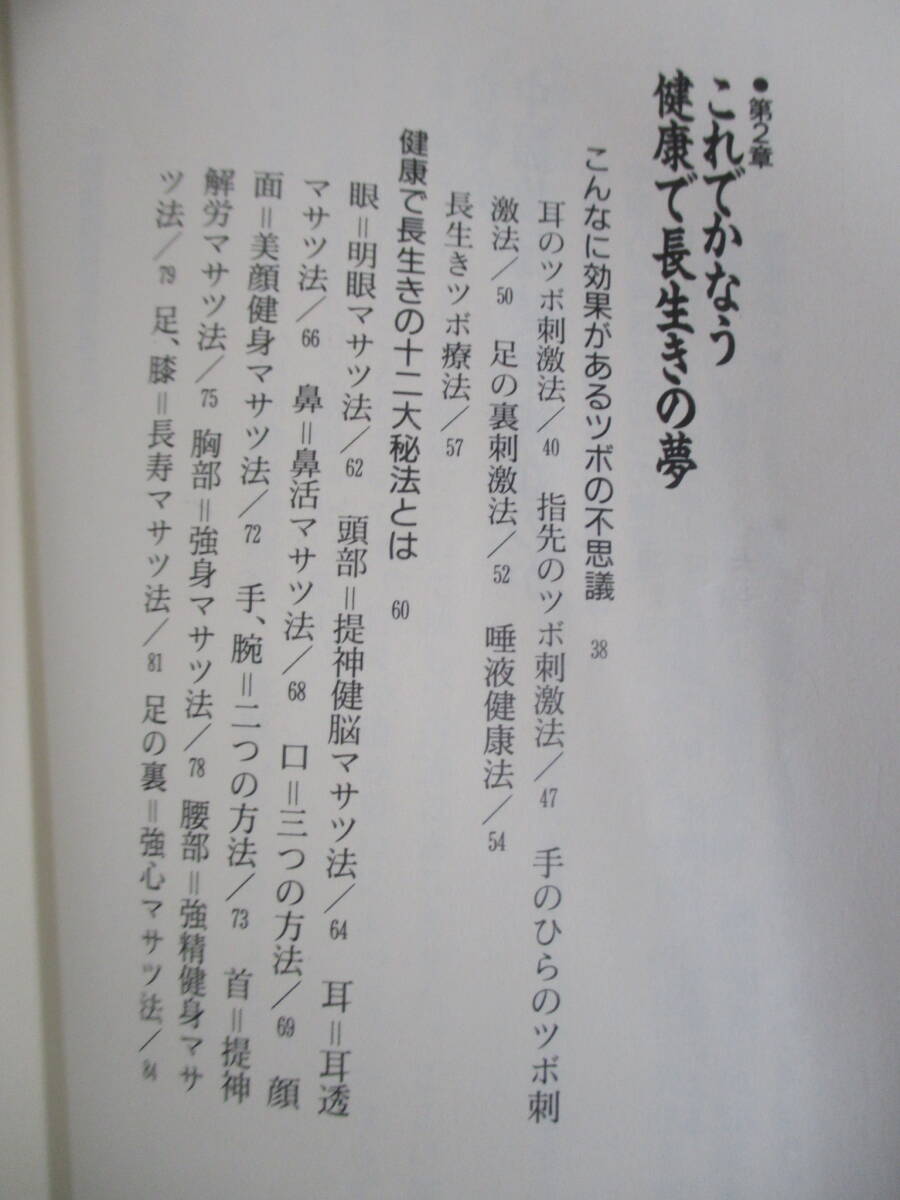 ●第2章
これでかなう
健康で長生きの夢
こんなに効果があるツボの不思議 38
耳のツボ刺激法／40 指先のツボ刺激法／47 手のひらのツボ刺
激法／50 足の裏刺激法／52 唾液健康法／54
長生きツボ療法／57
健康で長生きの十二大秘法とは 60
眼＝明眼マサツ法／62 頭部＝提神健脳マサツ法／64 耳＝耳透
マサツ法／66 鼻＝鼻活マサツ法／68 口＝三つの方法／69 顔
面＝美顔健身マサツ法／72 手、腕＝二つの方法／73 首＝提神
解労マサツ法／75 胸部＝強身マサツ法／78 腰部＝強精健身マサ
ツ法／79 足、膝＝長寿マサツ法／81 足の裏＝強心マサツ法／84